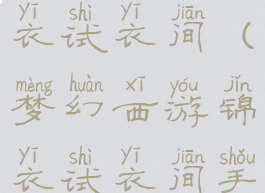 yī shì yī jiān
衣试衣间（
mèng huàn xī yóu jǐn
梦幻西游锦
yī shì yī jiān shǒu
衣试衣间手